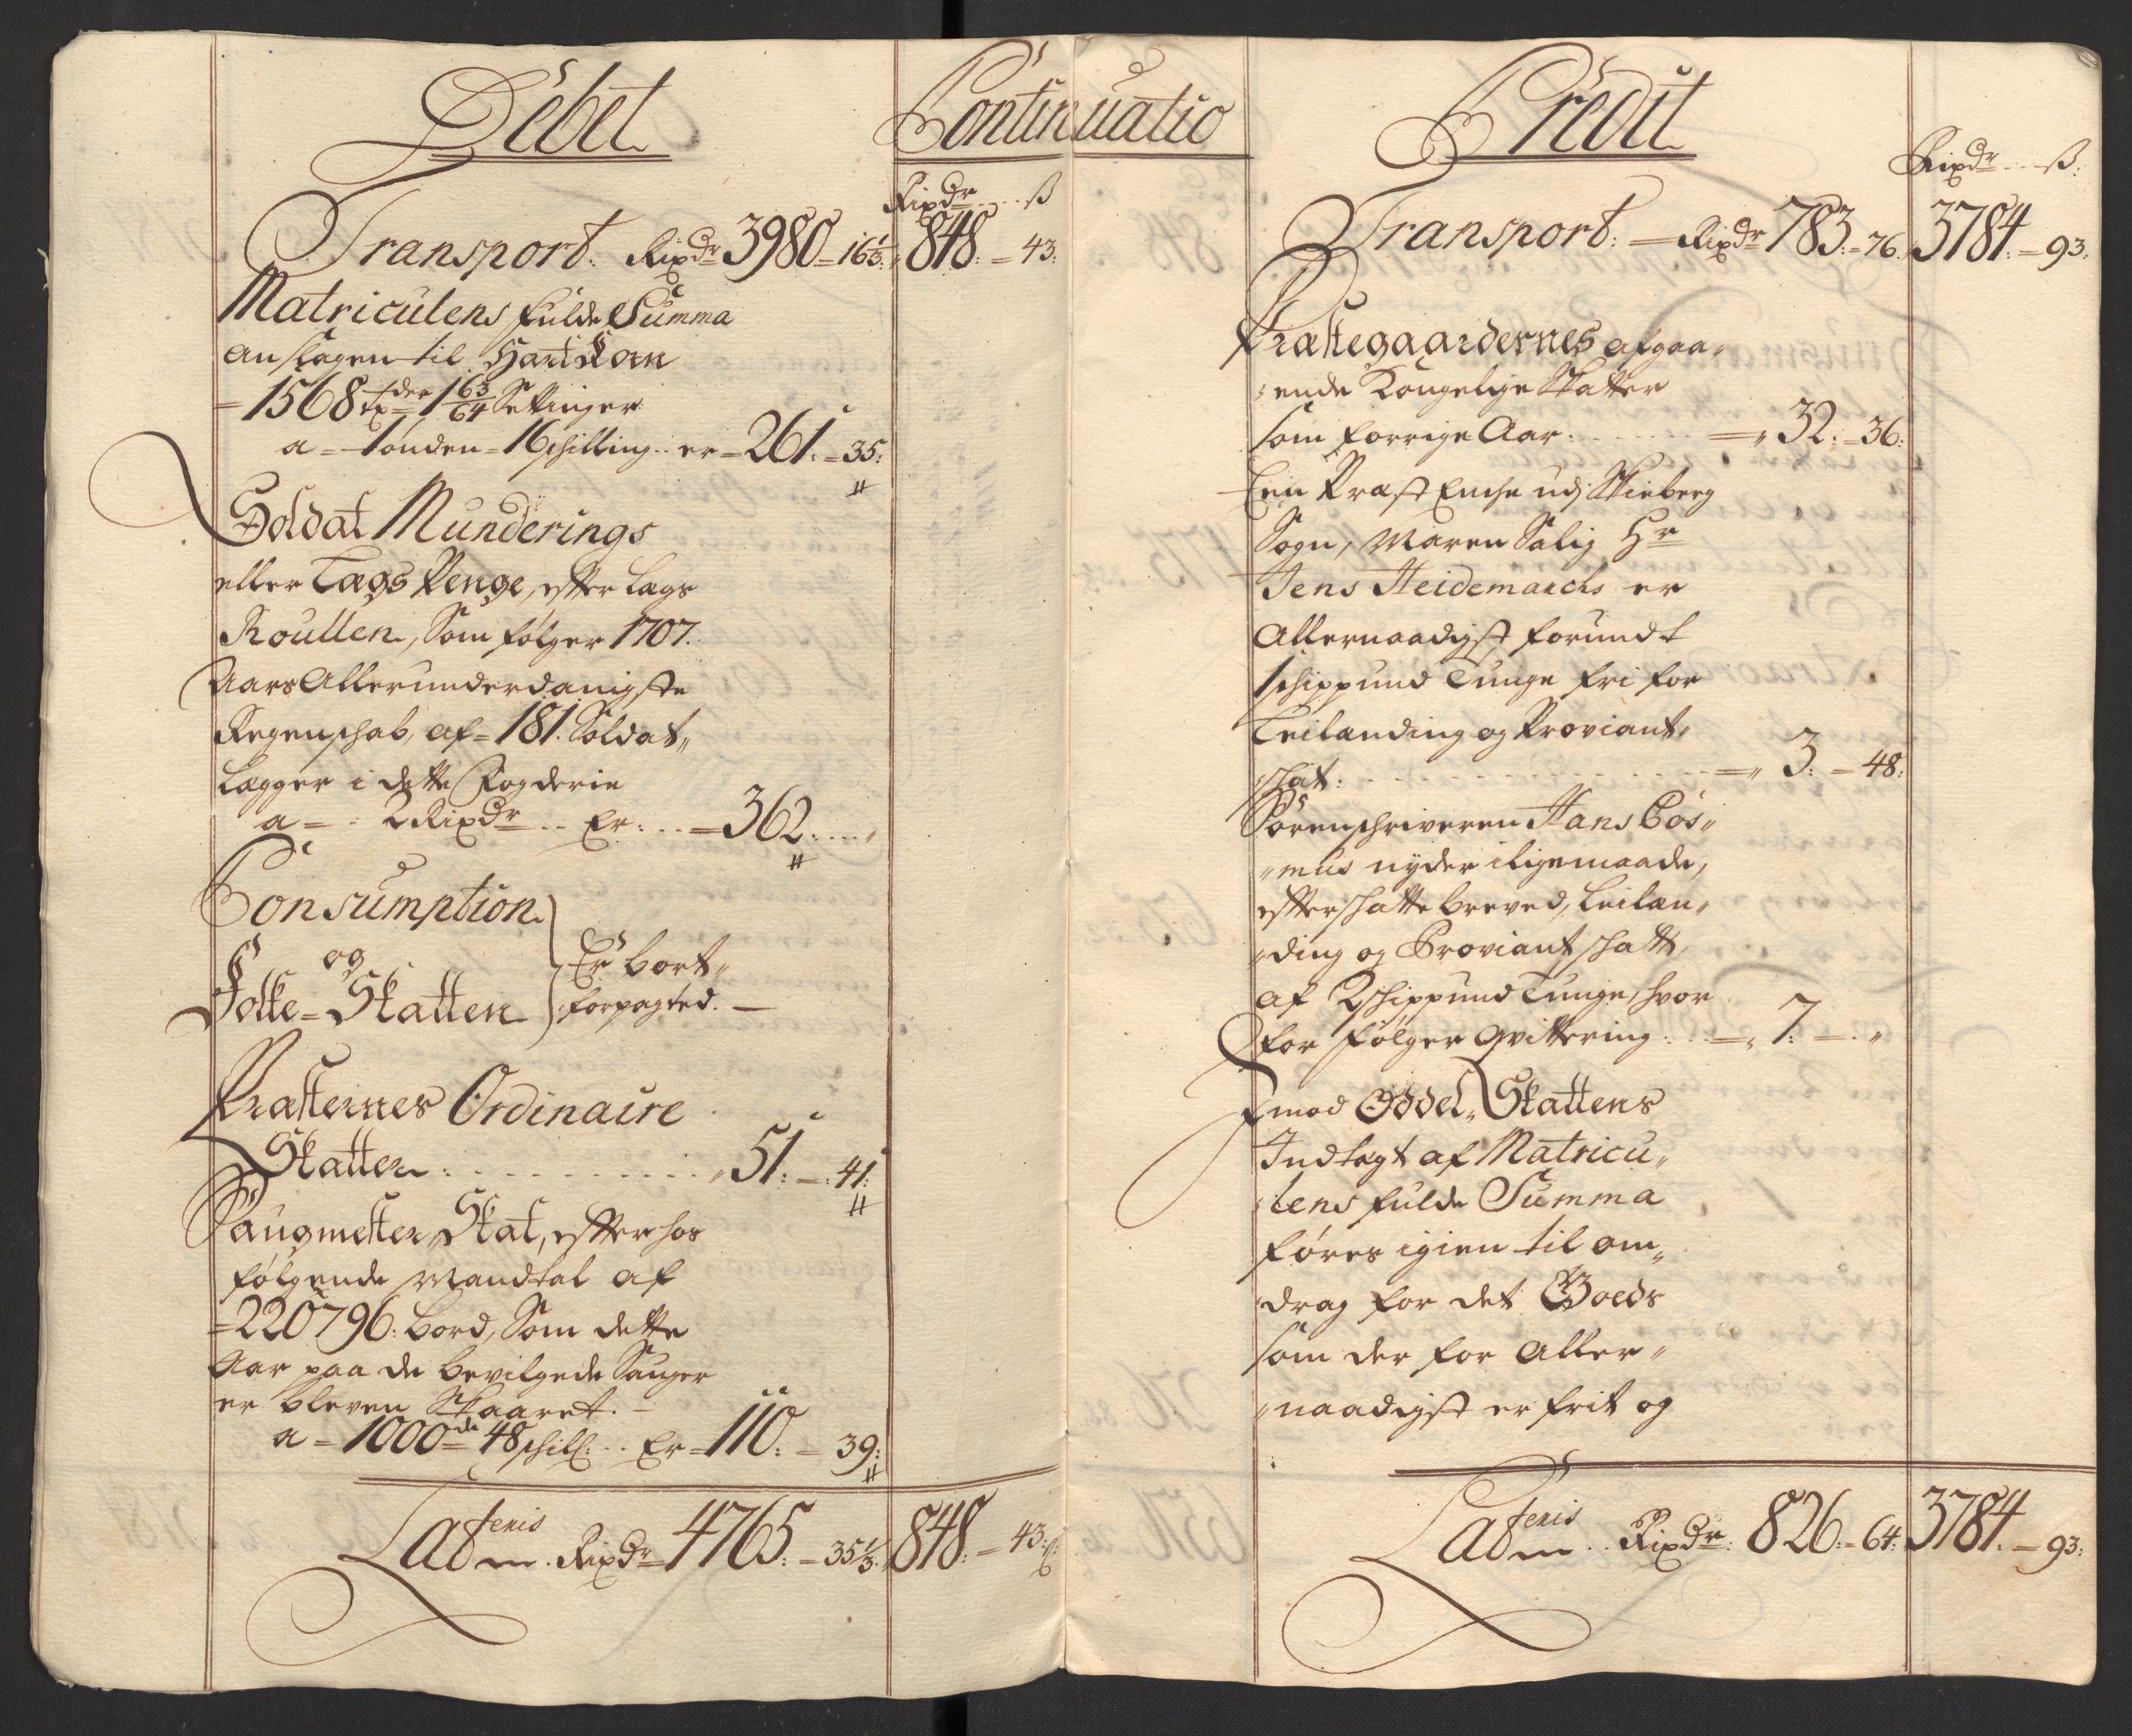 Debet
Continuatio
Rixdr ... ß
Transport. Rixdr 3980 = 16 1/3: 848: = 43:
Matriculens fulde Summa
anslagen til Hart Korn
= 1568 tr der 1 63/64 Settinger
a = 1 tønden = 16 schilling .. er = 261: = 35:
Soldat Munderings
eller Lægs Penge, effter Lægs
Roullen, Som følger 1707.
Aars Allerunderdanigste
Regenschab, af = 181. Soldat„
Lægger i dette Fogderie
a = : 2 Rixdr .. Er: .. = 362: ... „
Consumption
og
Folke = Skatten
Er bort„
forpagted. —
Præsternes Ordinaire
Skatter: . . . . . . . . . „ 51: —: 41:
Saugmester„ Skat, effter hos
følgende Mandtal af
= 220796: bord, Som dette
Aar paa de bevilgede Sauger
er bleven Skaaret. —
a = 1000de 48 schill: .. Er = 110: = 39:
Lateris Rixdr 4765: = 35 1/3: 848: = 43:
Credit
Rixdr ... ß:
Transport: — Rixdr 783: = 76. 3784: = 93.
Præstegaardernes afgaa„
„ende Kongelige Skatter
som forrige Aar: . . . . . =„ 32: = 36:
Een Præst Enche udj Skieberg
Sogn, Maren Salig Hr
Jens Heidemarchs er
Allernaadigst forundt
1 schippund Tunge fri for
Leilænding og Proviant„
„schat: . . . . . . . . . . =„ 3: = 48:
Sorenschriveren Hans Cos„
„mus nyder iligemaade,
effter schattebreved, Leilæn„
„ding og Proviant schatt,
af 2 schippund Tunge, hvor
for følger Qvittering: . . =„ 7: = . „
Imod Oddel„ Skattens
Indtegt af Matricu„
„lens fulde Summa
føres igien til om„
„drag for det Goeds
som der for Aller„
„naadigst er frit og
Lateris .. Rixdr: 826: = 64: 3784: = 93: